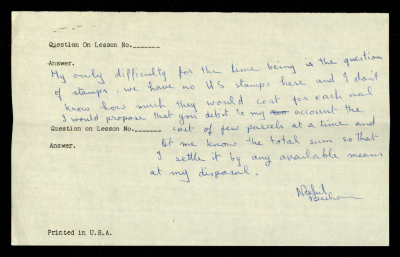 Question On Lesson No._______
Answer.
My only difficulty for the time being is the question
of stamps. We have no US stamps here and I don't
know how much they would cost for each mail
I would propose that you debit to my account the
Question On Lesson No._______ cost of few parcels at a time and
Answer. let me know the total sum so that
I settle it by any available means
at my disposal.
Printed in U.S.A.